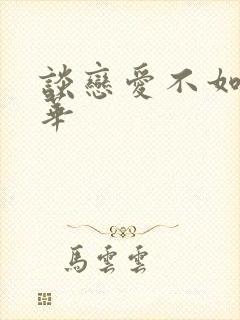 談戀愛不如
華
馬雲雲